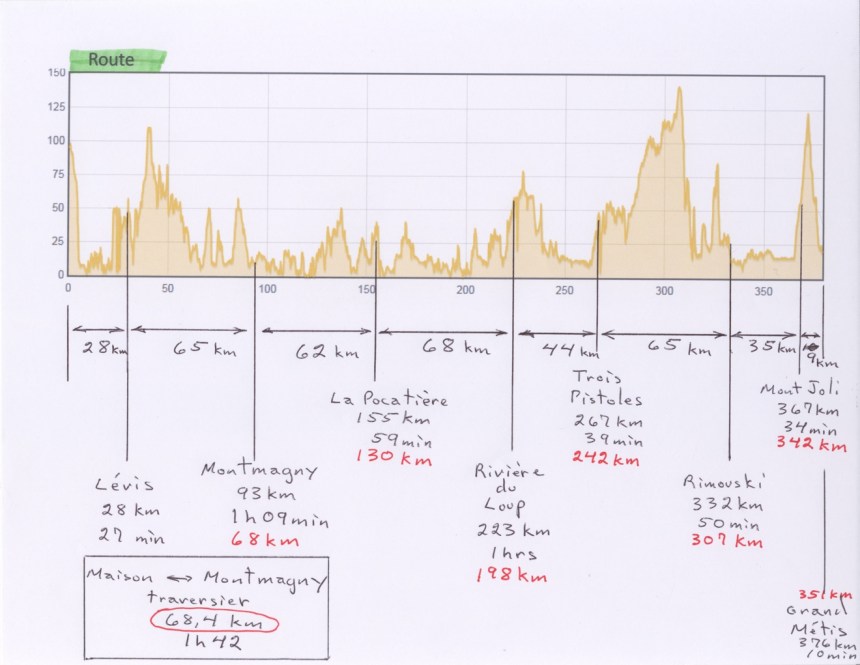 Route
150
125
100
75
50
25
0
0 50 100 150 200 250 300 350
28 km 65 km 62 km 68 km 44 km 65 km 35 km 9 km
Lévis
28 km
27 min
Montmagny
93 km
1 h 09 min
68 km
La Pocatière
155 km
59 min
130 km
Rivière
du
Loup
223 km
1 hrs
198 km
Trois
Pistoles
267 km
39 min
242 km
Rimouski
332 km
50 min
307 km
Mont Joli
367 km
34 min
342 km
351 km
Grand
Métis
376 km
10 min
Maison ↔ Montmagny
traversier
68,4 km
1 h 42